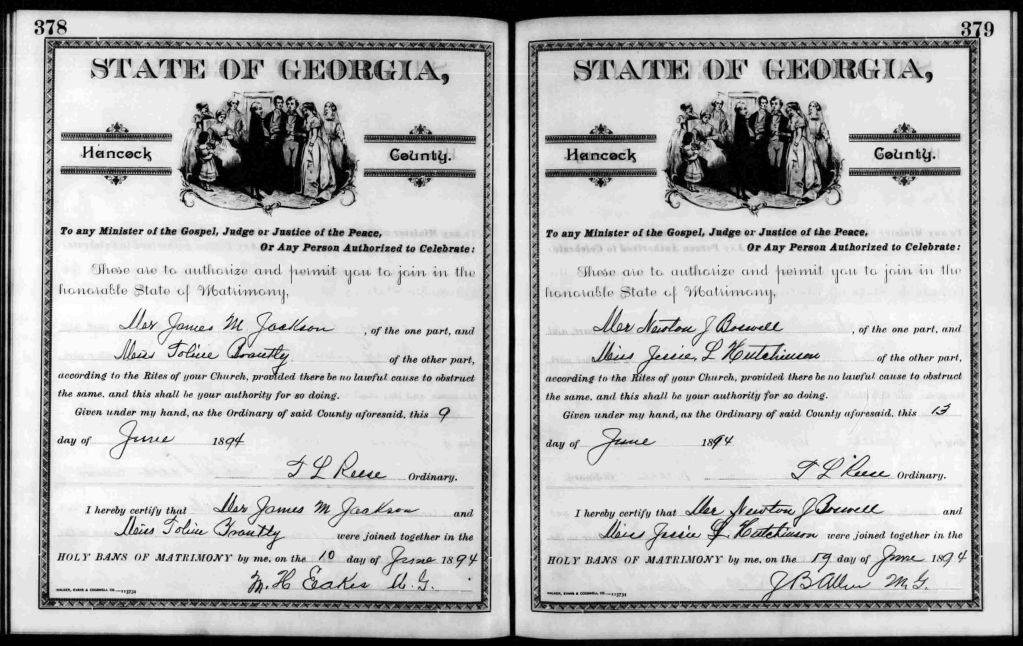 378
STATE OF GEORGIA,
Hancock County.
To any Minister of the Gospel, Judge or Justice of the Peace,
Or Any Person Authorized to Celebrate:
These are to authorize and permit you to join in the
honorable State of Matrimony,
Mr James M Jackson , of the one part, and
Miss of the other part,
according to the Rites of your Church, provided there be no lawful cause to obstruct
the same, and this shall be your authority for so doing.
Given under my hand, as the Ordinary of said County aforesaid, this 9
day of June 1894
T L Reese Ordinary.
I hereby certify that Mr James M Jackson and
Miss were joined together in the
HOLY BANS OF MATRIMONY by me, on the 10 day of June 1894
M. H. Eakes M. G.
WALKER, EVANS & COGSWELL CO.—113734
379
STATE OF GEORGIA,
Hancock County.
To any Minister of the Gospel, Judge or Justice of the Peace,
Or Any Person Authorized to Celebrate:
These are to authorize and permit you to join in the
honorable State of Matrimony,
Mr Newton J Boswell , of the one part, and
Miss Jessie L Hutchinson of the other part,
according to the Rites of your Church, provided there be no lawful cause to obstruct
the same, and this shall be your authority for so doing.
Given under my hand, as the Ordinary of said County aforesaid, this 13
day of June 1894
T L Reese Ordinary.
I hereby certify that Mr Newton J Boswell and
Miss Jessie L Hutchinson were joined together in the
HOLY BANS OF MATRIMONY by me, on the 19 day of June 1894
J B Allen M. G.
WALKER, EVANS & COGSWELL CO.—113734